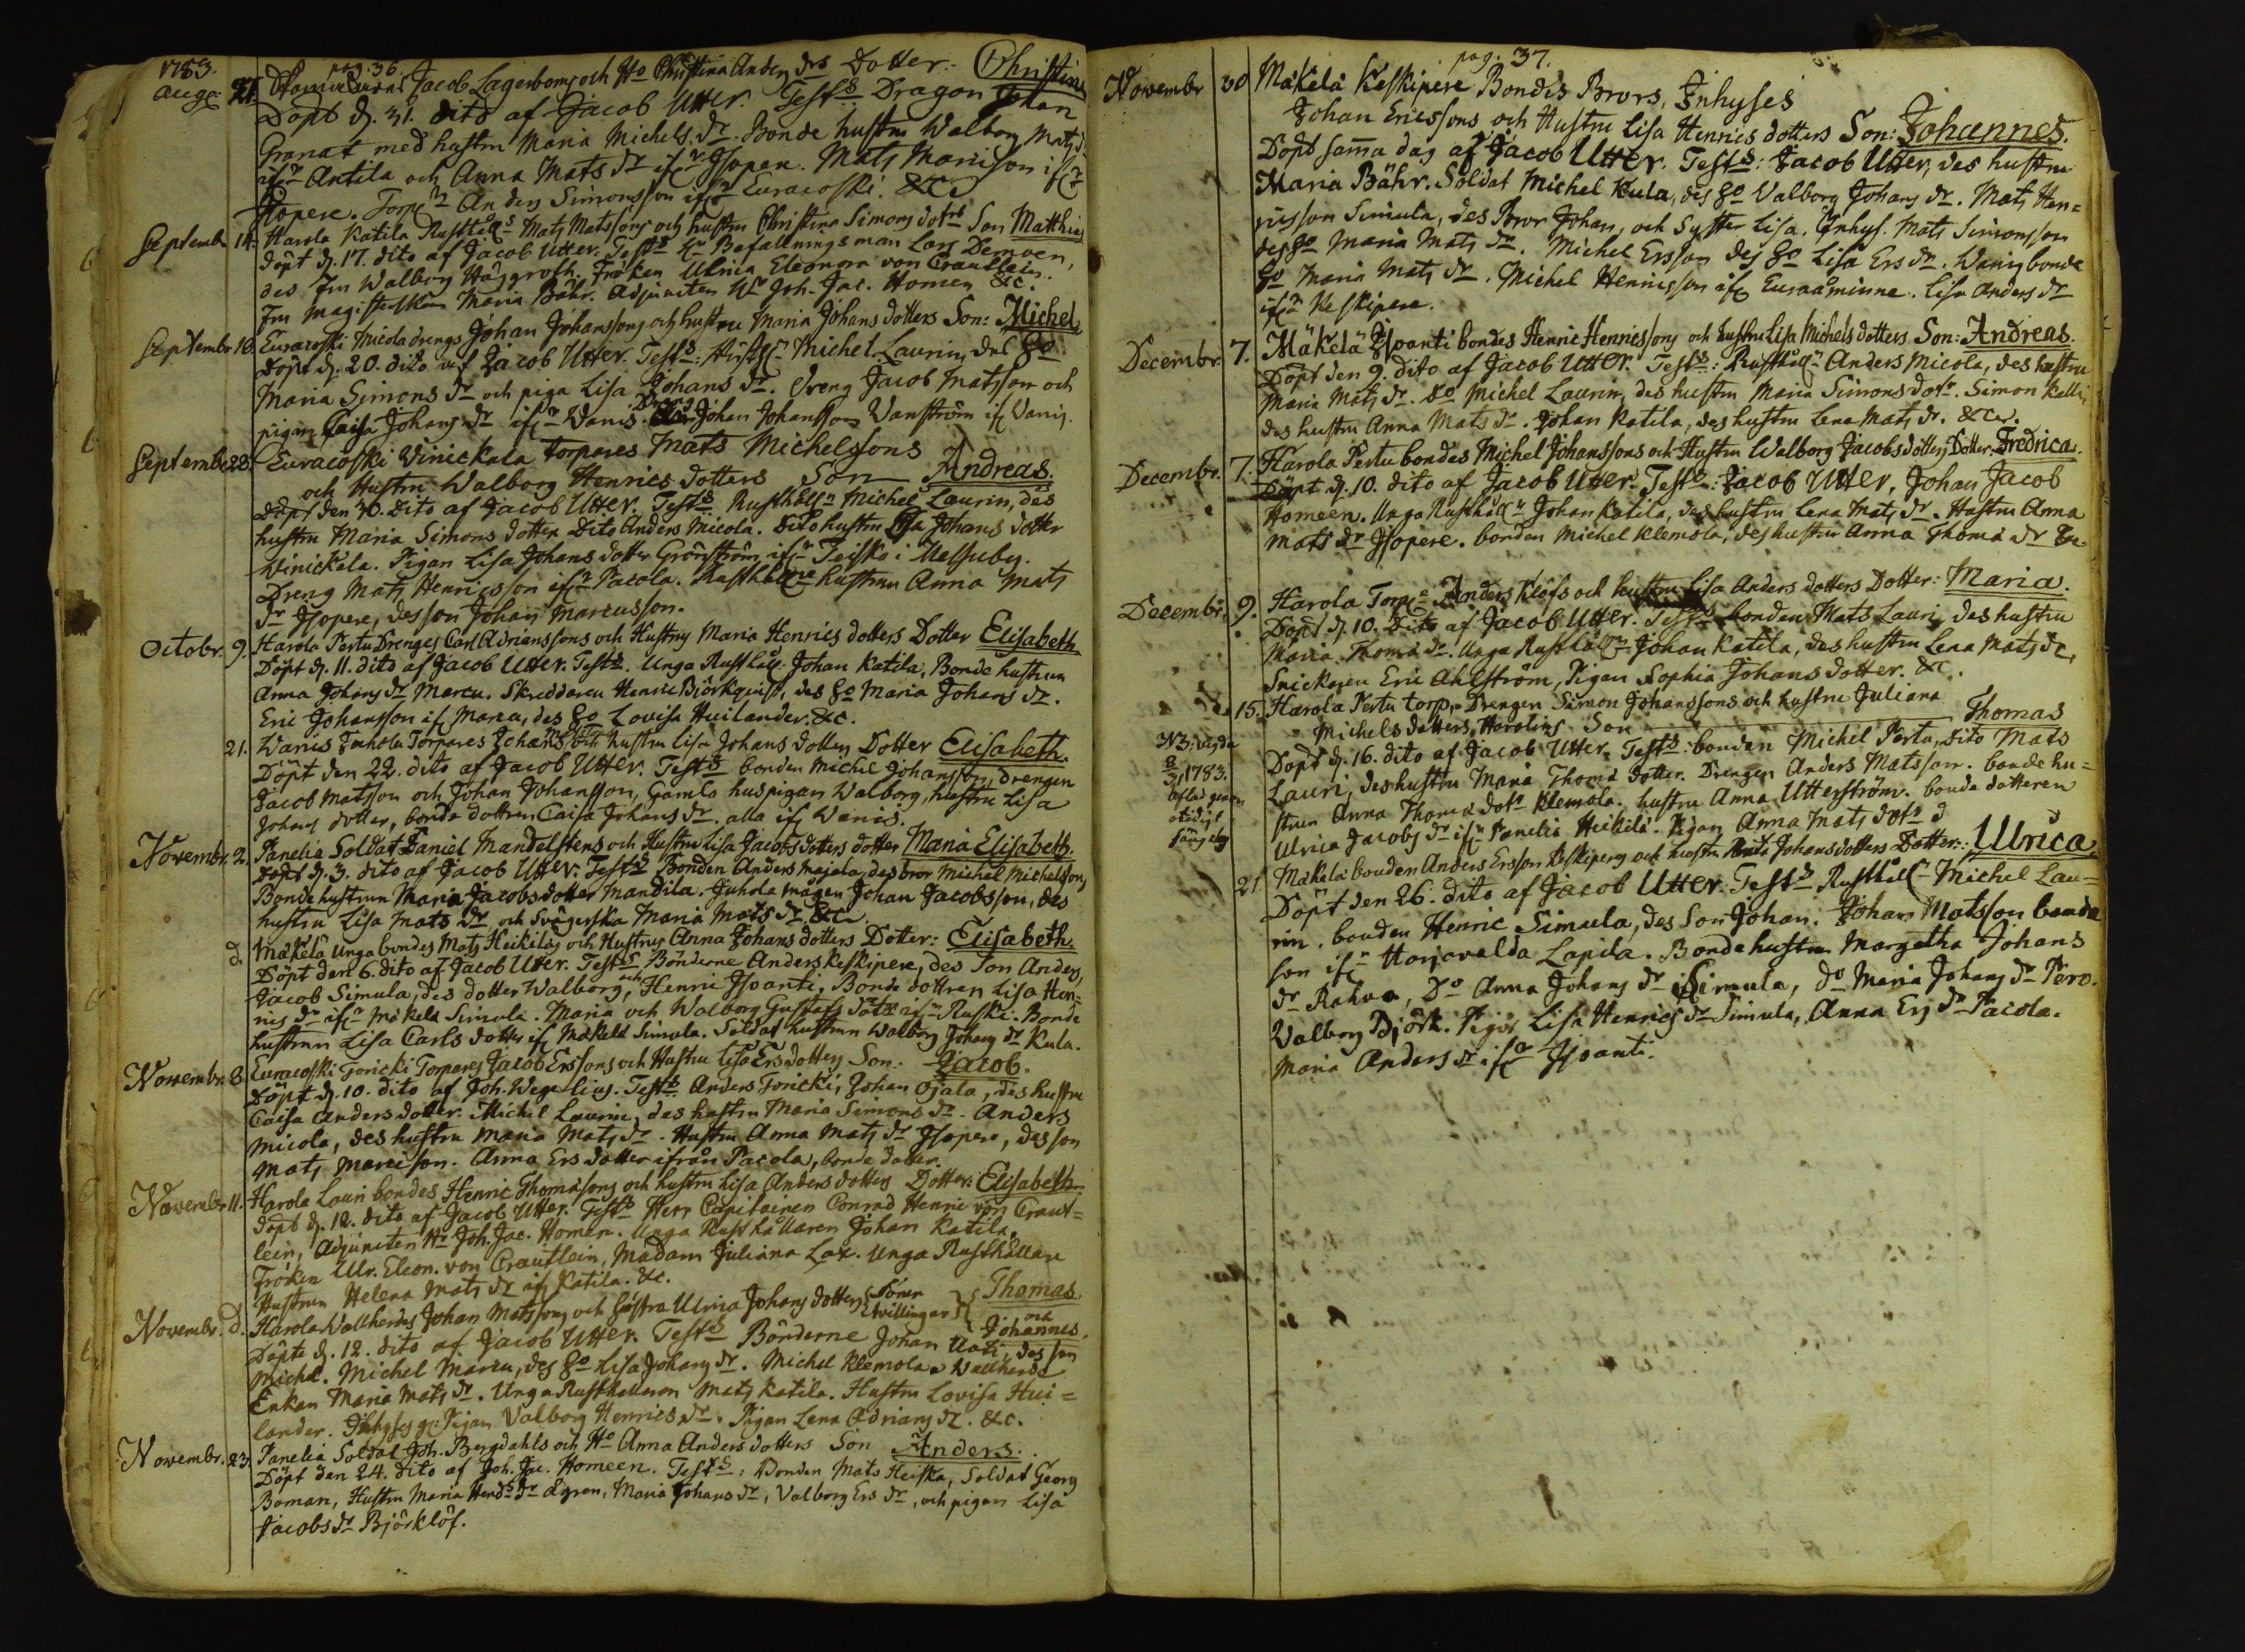 1783. pag. 36.
Aug: 21. Jacob Lagerboms och Ho Christina Anders drs Dotter: Christina
Döpt d. 31. dito af Jacob Utter. Tests Dragon Johan
Granat med hustru Maria Michels dr. Bonde hustru Walborg Mats d
ifrn Antila och Anna Mats dr ifrn Isopere. Mats Marcisson ifrn
Isopere. Torpn Anders Simonsson ifrn Euracoski. &c.
Septemb. 14. Harola Katila Rusthålls Mats Matssons och hustru Christina Simons dotrs Son Matthias
döpt d. 17. dito af Jacob Utter. Tests Hr Befallningsman Lars Demoen,
des Fru Walborg Häggroth. Fröken Ulrica Eleonora von Crautlein.
Fru Magisterskan Maria Bähr. Adjuncten Hr Joh. Jac. Homen &c.
Septembr 16. Euracoski Micola drengs Johan Johanssons och hustru Maria Johans dotters Son: Michel
Döpt d. 20. dito af Jacob Utter. Tests: Rusthn Michel Laurin, des Ho
Maria Simons dr och piga Lisa Johans dr. Dreng Jacob Matsson och
pigan Caisa Johans dr ifrn Wanis. Dreng Johan Johansson Wanström if Vanis.
Septemb 28. Euracoski Vinickala Torpares Mats Michelssons
och Hustru Walborg Henrics dotters Son Andreas.
Döpt den 30. dito af Jacob Utter. Tests Rusthålln Michel Laurin, des
hustru Maria Simons dotter. Dito Anders Micola. Dito hustru Lisa Johans dotter
Winickala. Pigan Lisa Johans dotter Grönström ifrn Teisko i Melsuby.
Dreng Mats Henricsson ifrn Pacola. Rusthållare hustrun Anna Mats
dr Isopere, des son Johan Marcusson.
Octobr. 9. Harola Pertu Drenges Carl Adrianssons och Hustrus Maria Henrics dotters Dotter Elisabeth.
Döpt d. 11. dito af Jacob Utter. Tests. Unga Rusthåll. Johan Katila, Bonde hustrun
Anna Johans dr Marcu. Skreddaren Henric Björkqvist, des Ho Maria Johans dr.
Eric Johansson if Marcu, des Ho Lovisa Huilander. &c.
21. Wanis Torpares Johans och hustru Lisa Johans dotters Dotter Elisabeth.
Döpt den 22. dito af Jacob Utter. Tests bonden Michel Johansson, drengen
Jacob Matsson och Johan Johansson, Gamla huspigan Walborg, hustru Lisa
Johans dotter, bonde dottren Caisa Johans dr. alla if Wanis.
Novembr. 2. Panelia Soldat Daniel Mandelstens och Hustru Lisa Jacobs dotters dotter Maria Elisabeth.
döpt d. 3. dito af Jacob Utter. Tests Bonden Anders Majala, des bror Michel Michelsson,
Bondehustrun Maria Jacobs dotter Mandila. Juhola mågen Johan Jacobsson, des
hustru Lisa Mats dr. och Svägerska Maria Mats dr &c.
d. Mäkelä Unga bondes Mats Heikiläs och Hustrus Anna Johans dotters Dotter: Elisabeth
Döpt den 6. dito af Jacob Utter. Tests Bönderne Anders Keskipere, des Son Anders,
Jacob Simula, des dotter Walborg, och Henric Isoanti, Bonde dottren Lisa Hen-
rics dr ifrn Mäkelä Simula. Maria och Walborg Gustafs dotr ifrn Ruski. Bonde
hustrun Lisa Carls dotter if Mäkelä Simula. Soldat hustrun Walborg Johans dr Kula.
Novembr. 8. Euracoski Toricki Torpares Jacob Erssons och Hustru Lisa Ers dotters Son. Jacob.
Döpt d. 10. dito af Joh. Wegelius. Tests Anders Toricki, Johan Ojala, des hustru
Caisa Anders dotter. Michel Laurin, des hustru Maria Simons dr. Anders
Micola, des hustru Maria Mats dr. Hustru Anna Mats dr Isopere, des son
Mats Marcisson. Anna Ers dotter ifrån Pacola, bonde dotter.
Novembr 11. Harola Lauri bondes Henric Thomassons och hustru Lisa Anders dotters Dotter: Elisabeth
döpt d. 12. dito af Jacob Utter. Tests Herr Capitainen Conrad Henric von Craut-
lein, Adjuncten Hr Joh. Jac. Homén. Unga Rusthållaren Johan Katila,
Fröken Ulr. Eleon. von Crautlein, Madam Juliana Lax. Unga Rusthållare
Hustrun Helena Mats dr if Katila. &c.
Novembr. d. Harola Wallherdes Johan Matssons och hustru Ulrica Johans dotters Söner tvillingar Thomas. och Johannes.
Döpte d. 12. dito af Jacob Utter. Tests Bönderne Johan Uoti, des son
Michel. Michel Marcu, des Ho Lisa Johans dr. Michel Klemola. Wallherde
Enkan Maria Mats dr. Unga Rusthållaren Mats Katila. Hustru Lovisa Hui-
lander. Pigan Valborg Henrics dr. Pigan Lena Adrians dr. &c.
Novembr. 23. Panelia Soldat Joh. Bergdahls och Ho Anna Anders dotters Son Anders.
Döpt den 24. dito af Joh. Jac. Homeen. Tests: Bonden Mats Heiska, Soldat Georg
Boman, Hustru Maria Hends dr Ågren, Maria Johans dr, Valborg Ers dr, och pigan Lisa
Jacobs dr Björklöf.
pag. 37.
Novembr 30 Mäkelä Keskipere Bondes Brors, Inhyses
Johan Ericssons och Hustru Lisa Henrics dotters Son: Johannes.
Döpt samma dag af Jacob Utter. Tests: Jacob Utter, des hustru
Maria Bähr. Soldat Michel Kula, des Ho Valborg Johans dr. Mats Hen-
ricsson Simula, des Bror Johan, och Syster Lisa. Inhys. Mats Simonsson
des Ho Maria Mats dr. Michel Ersson des Ho Lisa Ers dr. Wanis bonde
Ho Maria Mats dr. Michel Henricsson if Euraåminne. Lisa Anders dr
ifrn Keskipere.
Decembr. 7. Mäkelä Isoanti bondes Henric Henricssons och hustru Lisa Michels dotters Son: Andreas.
Döpt den 9. dito af Jacob Utter. Tests: Rusthålln Anders Micola, des hustru
Maria Mats dr. Do Michel Laurin, des hustru Maria Simons dotr. Simon Kelli,
des hustru Anna Mats dr. Johan Katila, des hustru Lena Mats dr. &c.
Decembr. 7. Harola Pertu bondes Michel Johanssons och Hustru Walborg Jacobs dotters Dotter. Fredrica.
Döpt d. 10. dito af Jacob Utter. Tests: Jacob Utter, Johan Jacob
Homeen. Unga Rusthålln Johan Katila, des hustru Lena Mats dr. Hustru Anna
Mats dr Isopere. bonden Michel Klemola, des hustru Anna Thoma dr
Decembr. 9. Harola Torps Anders Klöfs och hustru Lisa Anders dotters Dotter: Maria.
Döpt d. 10. Dito af Jacob Utter. Tests bonden Mats Lauri, des hustru
Maria Thoma dr. Unga Rusthålln Johan Katila, des hustru Lena Mats dr,
Snickaren Eric Ahlström, Pigan Sophia Johans dotter. &c.
15. Harola Pertu torp, Drengen Simon Johanssons och hustru Juliana
Michels dotters, Harolins Son Thomas
NB: vigda
1783.
Döpt d. 16. dito af Jacob Utter. Tests: bonden Michel Pertu, dito Mats
Lauri, des hustru Maria Thoma dotter. Drengen Anders Matsson. bonde hu-
strun Anna Thoma dotr Klemola. hustru Anna Utterström. bonde dotteren
Ulrica Jacobs dr ifrn Panelia Heikilä. Pigan Anna Mats dotr d
21. Mäkelä bonden Anders Ersson Keskiperes och hustru Johans dotters Dotter: Ulrica.
Döpt den 26. dito af Jacob Utter. Tests Rusthålln Michel Lau-
rin. bonden Henric Simula, des Son Johan. Johan Matsson bonde
son ifrn Harjavalda Lapila. Bonde hustrun Margetha Johans
dr Rahva, Do Anna Johans dr Simula, do Maria Johans dr Pero.
Valborg Björk. Pigor Lisa Henrics dr Simula, Anna Ers dr Pacola.
Maria Anders dr ifrn Isoanti.